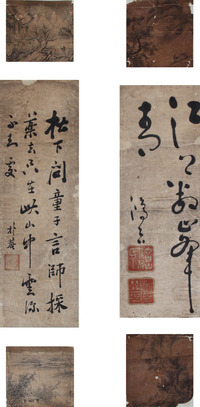 江上數峯
青
松下問童子言師採
藥去只在此山中雲深
不知處